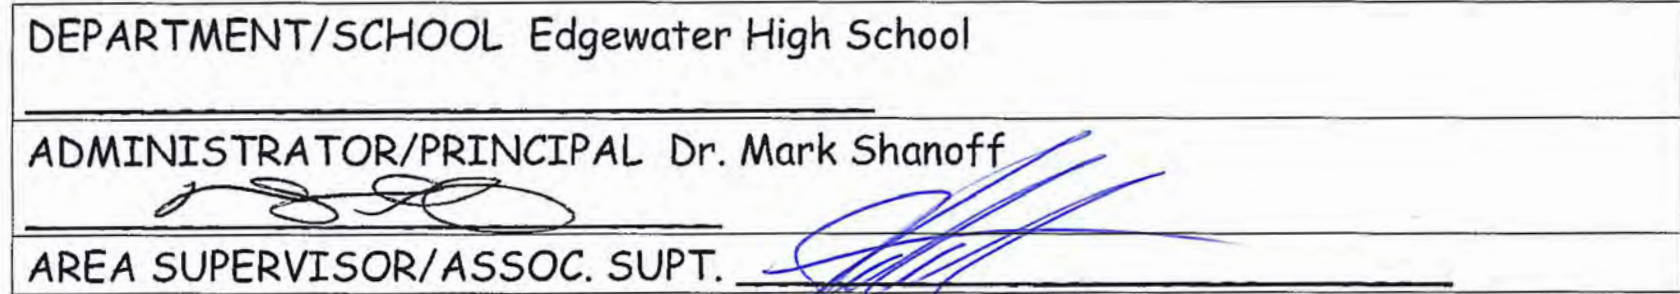 DEPARTMENT/SCHOOL Edgewater High School
ADMINISTRATOR/PRINCIPAL Dr. Mark Shanoff
AREA SUPERVISOR/ASSOC. SUPT.